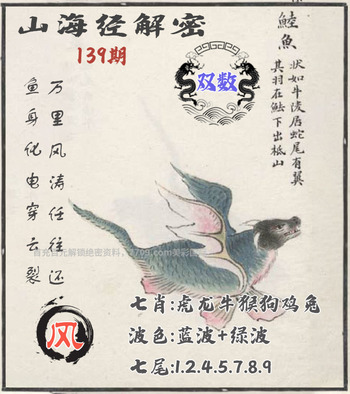 山海经解密
139期
双数
鯥魚
状如牛陵居蛇尾有翼
其羽在魼下出柢山
万里风涛任往还
鱼身化电穿云裂
风
七肖:虎龙牛猴狗鸡兔
波色:蓝波+绿波
七尾:1.2.4.5.7.8.9